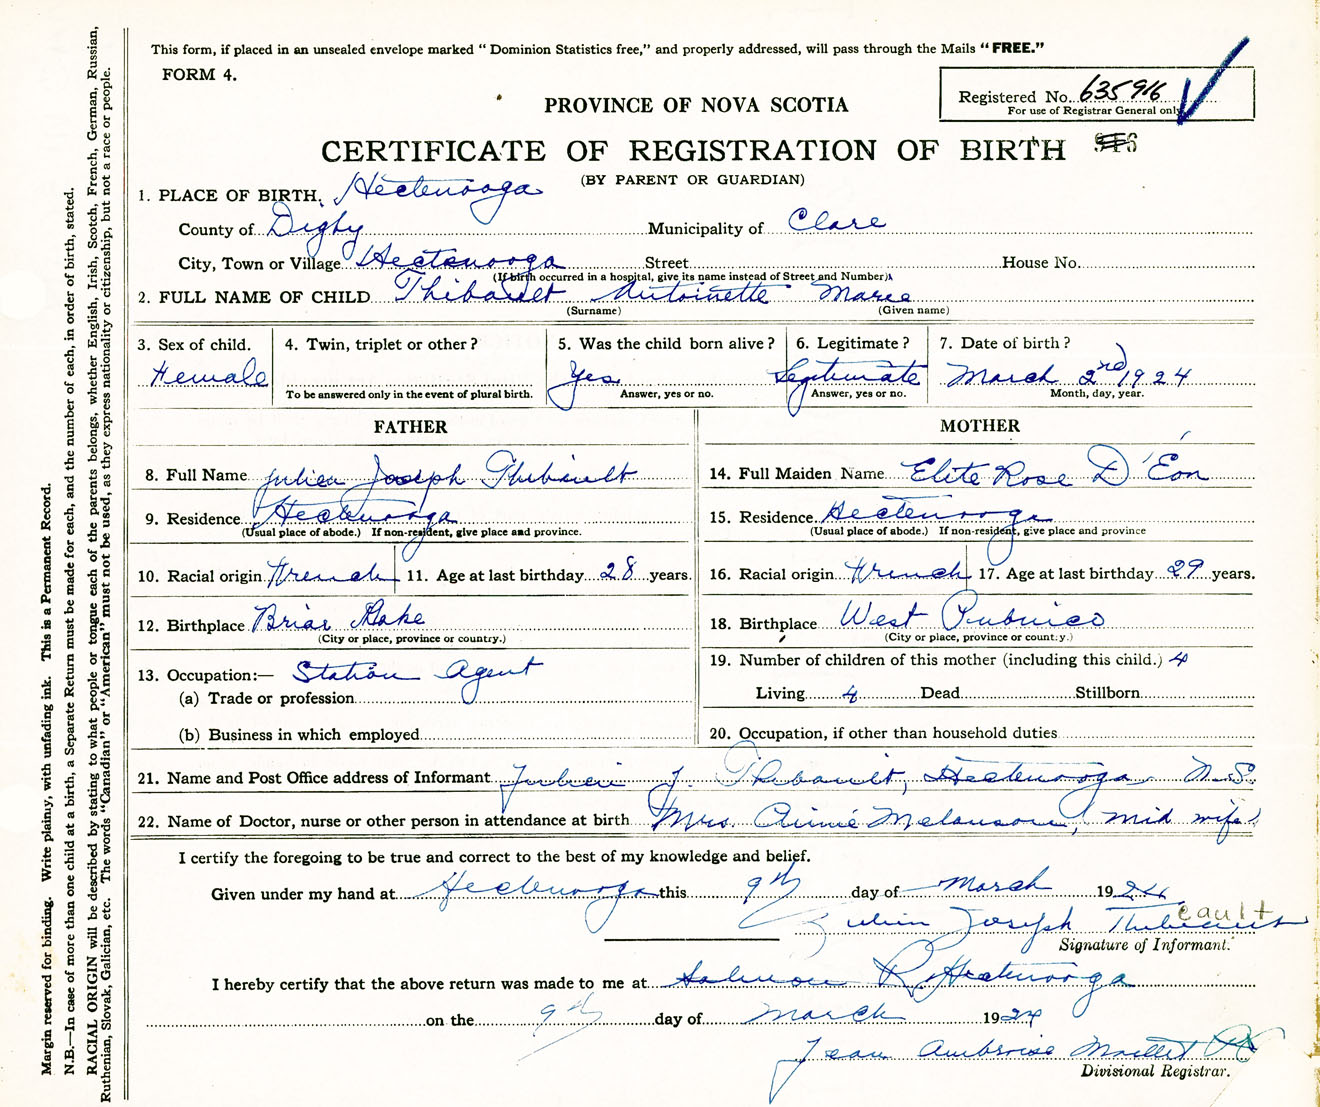 This form, if placed in an unsealed envelope marked "Dominion Statistics free," and properly addressed, will pass through the Mails "FREE."
FORM 4.
Registered No. 635916
For use of Registrar General only
PROVINCE OF NOVA SCOTIA
CERTIFICATE OF REGISTRATION OF BIRTH
(BY PARENT OR GUARDIAN)
1. PLACE OF BIRTH. Hectenooga
County of Digby Municipality of Clare
City, Town or Village Hectenooga Street House No.
(If birth occurred in a hospital, give its name instead of Street and Number)
2. FULL NAME OF CHILD Thibault Antoinette Marie
(Surname) (Given name)
3. Sex of child. 4. Twin, triplet or other? 5. Was the child born alive? 6. Legitimate? 7. Date of birth?
Female Yes Legitimate March 2nd 1924
To be answered only in the event of plural birth. Answer, yes or no. Answer, yes or no. Month, day, year.
FATHER MOTHER
8. Full Name Julien Joseph Thibault 14. Full Maiden Name Elite Rose D'Éon
9. Residence Hectenooga 15. Residence Hectenooga
(Usual place of abode.) If non-resident, give place and province. (Usual place of abode.) If non-resident, give place and province
10. Racial origin French 11. Age at last birthday 28 years. 16. Racial origin French 17. Age at last birthday 29 years.
12. Birthplace Briar Lake 18. Birthplace West Pubnico
(City or place, province or country.) (City or place, province or country.)
13. Occupation:— Station Agent 19. Number of children of this mother (including this child.) 4
(a) Trade or profession Living 4 Dead Stillborn
(b) Business in which employed 20. Occupation, if other than household duties
21. Name and Post Office address of Informant Julien J. Thibault, Hectenooga N.S.
22. Name of Doctor, nurse or other person in attendance at birth Mrs. Annie Melanson, mid wife
I certify the foregoing to be true and correct to the best of my knowledge and belief.
Given under my hand at Hectenooga this 9th day of March 1924
eault
Julien Joseph Thibeault
Signature of Informant.
I hereby certify that the above return was made to me at Salmon R. Hectenooga
on the 9th day of March 1924
Jean Ambroise Maillet
Divisional Registrar.
Margin reserved for binding. Write plainly, with unfading ink. This is a Permanent Record.
N.B.—In case of more than one child at a birth, a Separate Return must be made for each, and the number of each, in order of birth, stated.
RACIAL ORIGIN will be described by stating to what people or tongue each of the parents belongs, whether English, Irish, Scotch, French, German, Russian,
Ruthenian, Slovak, Galician, etc. The words "Canadian" or "American" must not be used, as they express nationality or citizenship, but not a race or people.